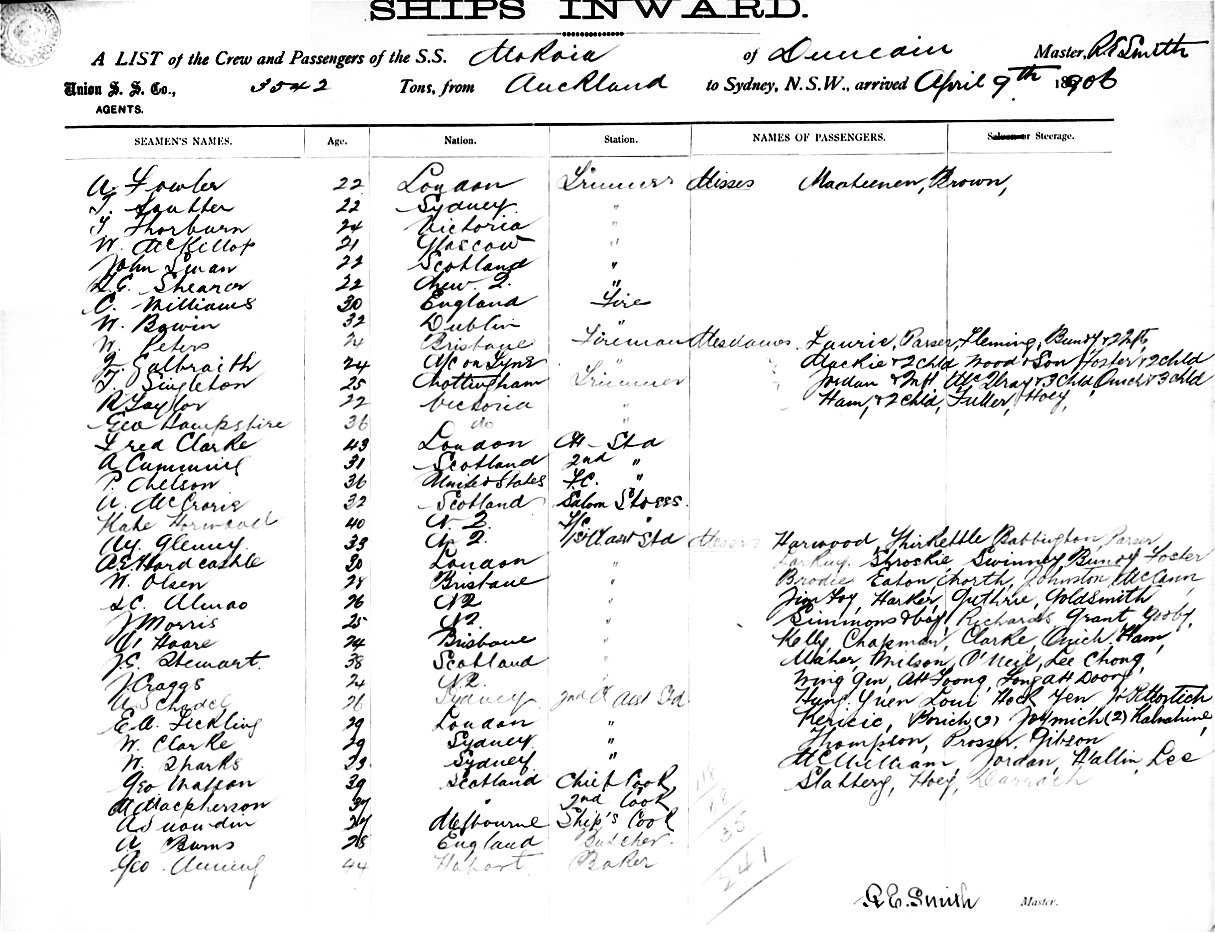 SHIPS INWARD.
A LIST of the Crew and Passengers of the S.S. Mokoia of Dunedin Master, R E Smith
Union S. S. Co., 3542 Tons, from Auckland to Sydney, N.S.W., arrived April 9th 1906
AGENTS.
SEAMEN'S NAMES. Age. Nation. Station. NAMES OF PASSENGERS. Saloon or Steerage.
A. Fowler 22 London Trimmers Misses Brown,
T. 22 Sydney "
T. Thorburn 24 Victoria "
W. McKillop 21 Glascow "
John Swan 22 Scotland "
Shearer 22 New Z. "
C. Williams 30 England Fire
W. Bowin 32 Dublin "
W. Peters 24 Brisbane Fireman Mesdames Laurie, Parser, Fleming, Bundy & 2
Galbraith 24 Mackie & 2 chld Wood & Son Foster & 2 chld
T. Singleton 25 Nottingham Trimmer Jordan & & 3 chld & 3 chld
R Taylor 22 Victoria " Ham, & 2 chld, Fuller, Hoey,
Geo Hampshire 36 do "
Fred Clarke 43 London Ch Std
A Cumming 31 Scotland 2nd "
P. Nelson 36 United States F.C. "
A. McCrorie 32 Scotland Saloon Stoess.
Kate Horwood 40 N. Z. F/C "
Wy. Glenny 33 N. Z. Std Messrs Harwood Thirkettle Babbington, Parser
A E Hardcastle 30 London " Larking, Swinney Bundy Foster
W. Olsen 28 Brisbane " Brodie Eaton North, Johnston McCann
26 N Z " Jim Foy, Harker, Guthrie, Goldsmith
J Morris 25 N Z. " Simmons & boy, Richards Grant, Gooby
Hoare 24 Brisbane " Kelly, Chapman, Clarke Ham
J E. Stewart. 38 Scotland " Maher, Milson, O'Neil, Lee Chong,
J Craggs 24 N Z. " Wing Gin, Ah Foong, Fong Ah Doong,
A Schadel 26 Sydney 2nd Std Hung Yuen Loui Hock Yen
E. A. Fickling 29 London " (2) Joymich (2)
W. Clarke 29 Sydney " Thompson, Prosser, Gibson
W. Sharks 33 Sydney " McWilliam, Jordan, Hallin, Lee
Geo Watson 39 Scotland Chief Cook, Stahberg, Hoey, Darrach
A Macpherson 37 " 2nd Cook
27 Melbourne Ship's Cook
A Burns 28 England Butcher.
Geo 44 Hobart Baker
35
241
R. E. Smith Master.